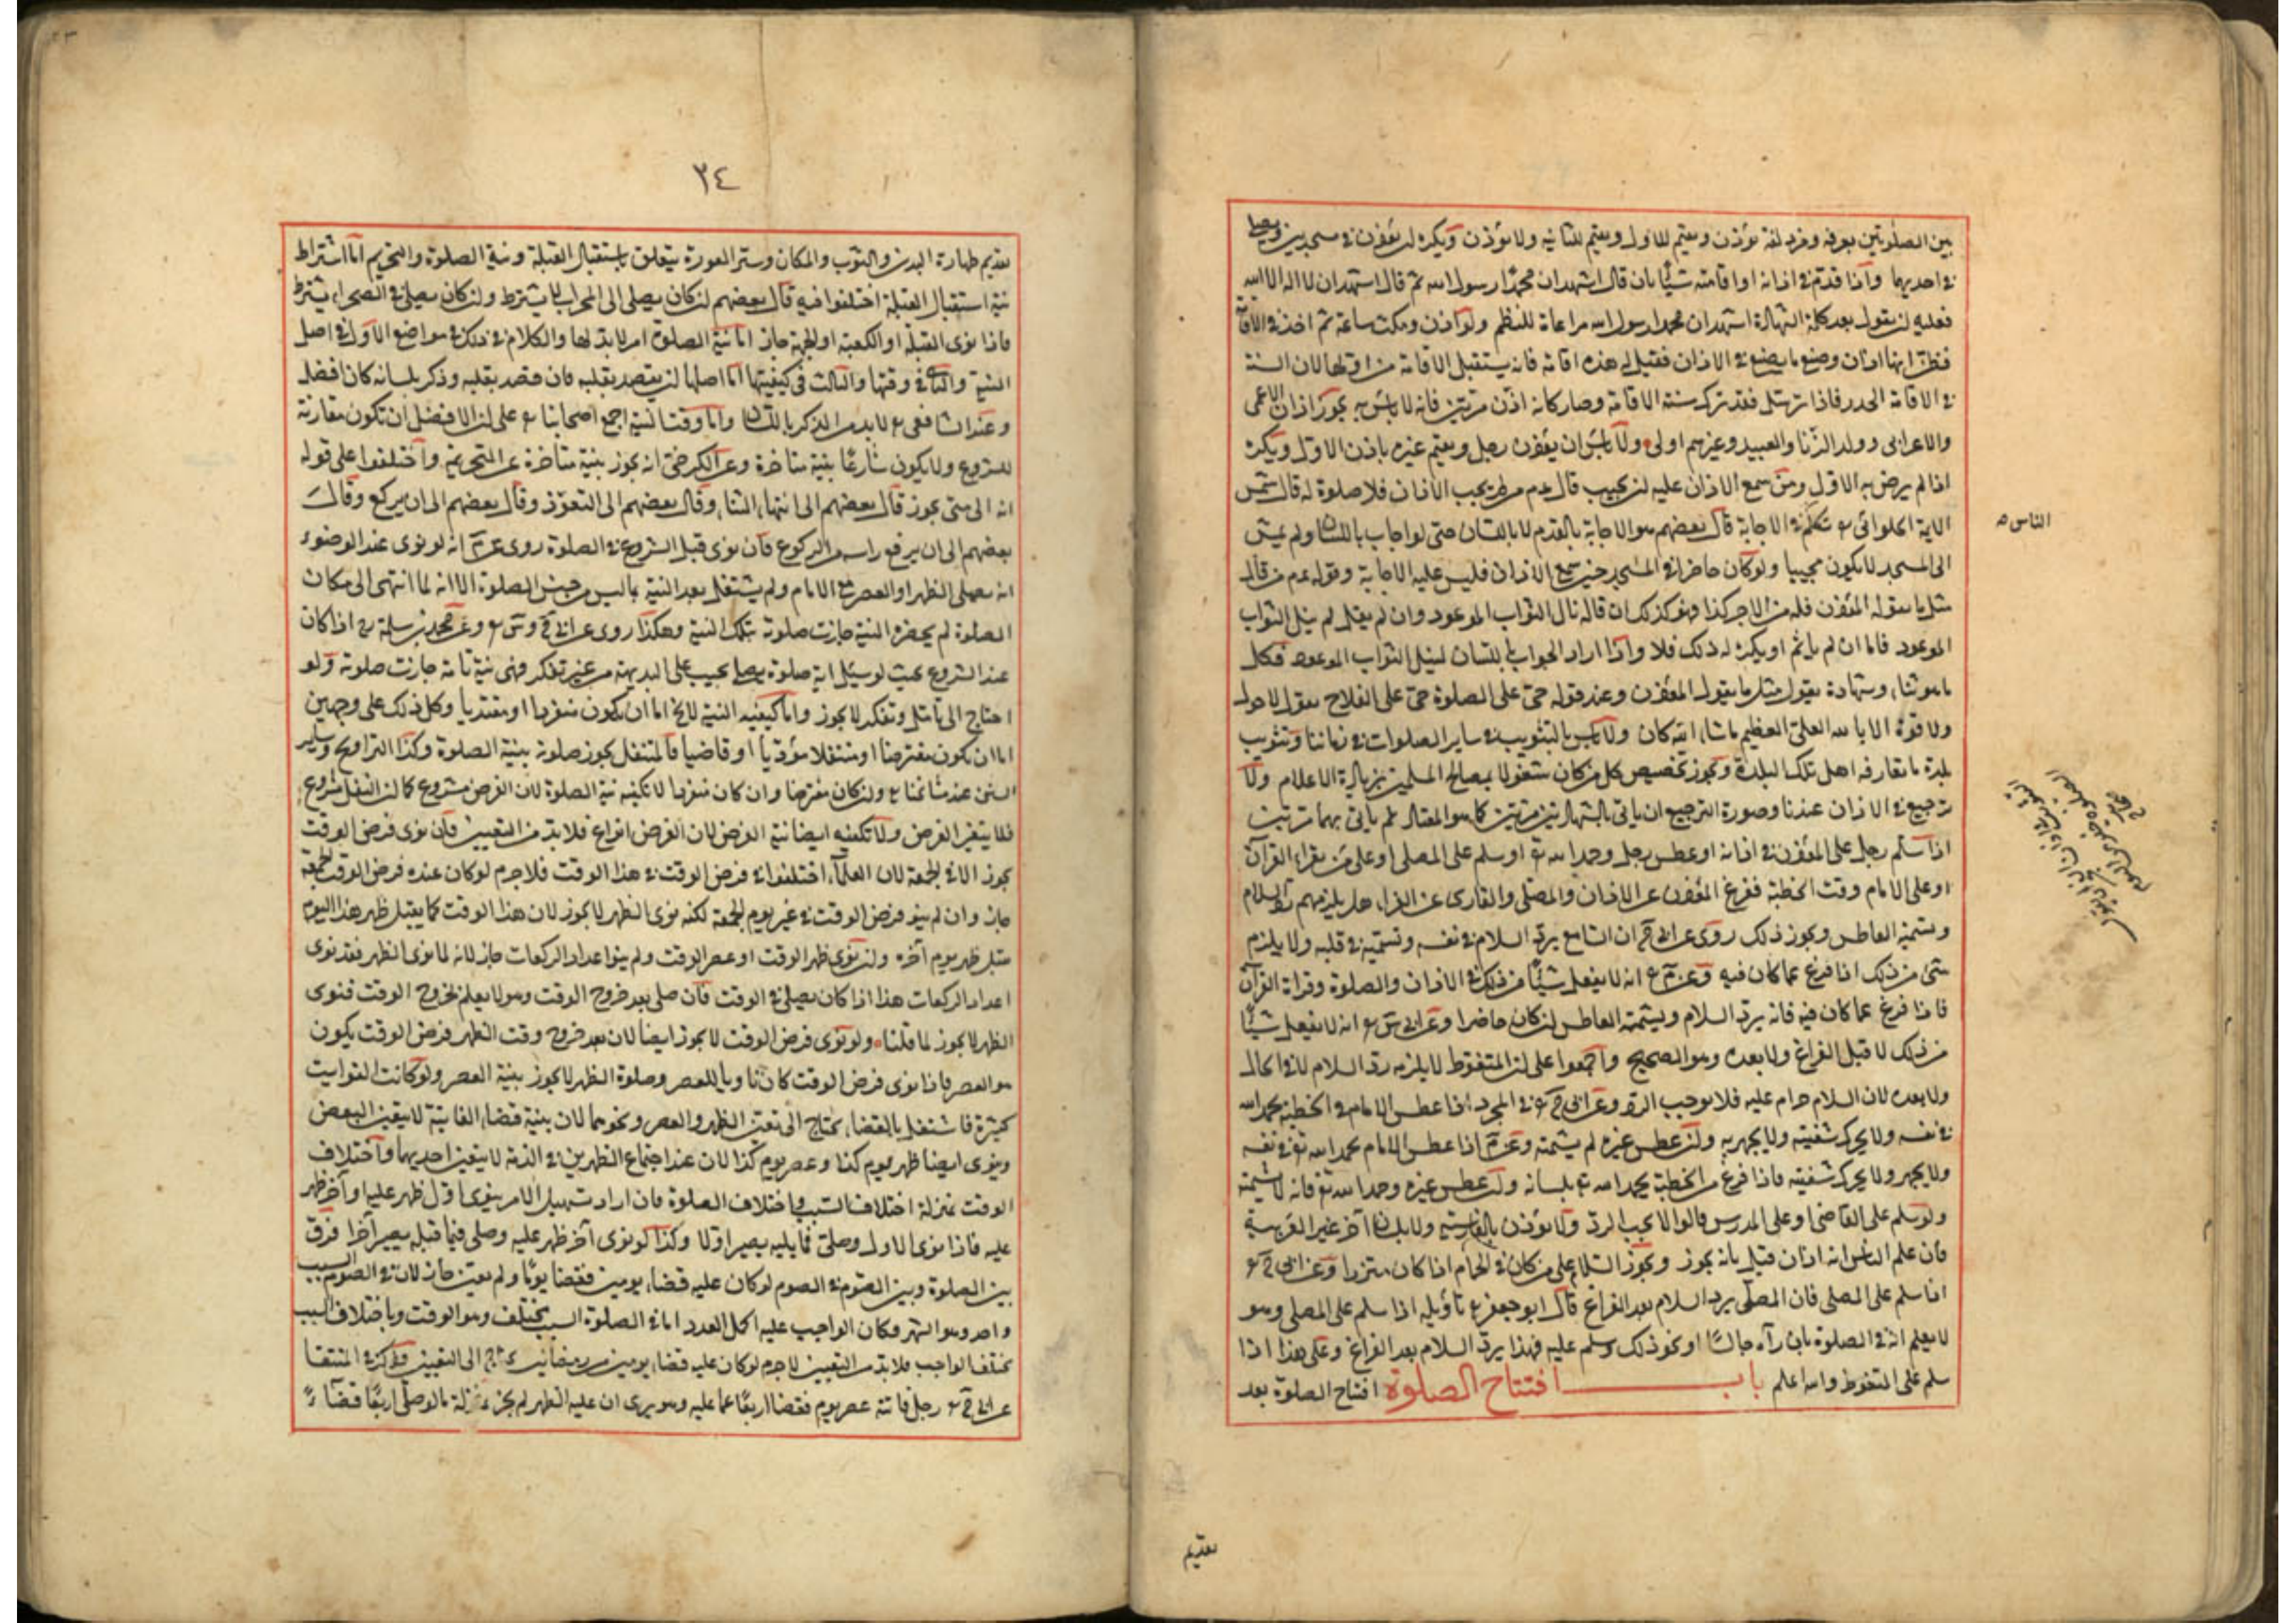 بين الصلوتين بعرفة ومزدلفة يؤذن ويقيم للاولى ويقيم للثانية ولا يؤذن ويكره ان يؤذن في مسجدين ويصلي
في احديهما واذا قدم في اذانه او اقامته شيئا بان قال اشهد ان محمدا رسول الله ثم قال اشهد ان لا اله الا الله
فعليه ان يقول بعد كلمة الشهادة اشهد ان محمدا رسول الله مراعاة للنظم ولو اذن ومكث ساعة ثم اخذ في الاقامة
فظن انها اذان وصنع ما يصنع في الاذان فقيل له هذه اقامة فانه يستقبل الاقامة من اولها لان السنة
في الاقامة الحدر فاذا ترسل فقد ترك سنة الاقامة وصار كانه اذن مرتين فانه لا باس به يجوز اذان الاعمى
والاعرابي وولد الزنا والعبيد وغيرهم اولى ولا باس ان يؤذن رجل ويقيم غيره باذن الاول ويكره
اذا لم يرض به الاول ومن سمع الاذان عليه ان يجيب قال عم من لم يجب الاذان فلا صلوة له قال شمس
الايمة الحلوائي تكلم في الاجابة قال بعضهم هو الاجابة بالقدم لا باللسان حتى لو اجاب باللسان ولم يمش
الناس
الى المسجد لا يكون مجيبا ولو كان حاضرا في المسجد حين سمع الاذان فليس عليه الاجابة وقوله عم من قال
مثل ما يقوله المؤذن فله من الاجر كذا فهو كذلك ان قاله نال الثواب الموعود وان لم يقل لم ينل الثواب
الموعود فاما ان لم ياثم او يكره له ذلك فلا واذا اراد الجواب باللسان لينل الثواب الموعود فكل
ما هو ثناء وشهادة يقول مثل ما يقول المؤذن وعند قوله حي على الصلوة حي على الفلاح يقول لا حول
ولا قوة الا بالله العلي العظيم ما شاء الله كان ولا باس بالتثويب في ساير الصلوات في زماننا وتثويب
بلدة ما تعارفه اهل تلك البلدة ويجوز تخصيص كل من كان مشغولا بمصالح المسلمين بزيادة الاعلام ولا
ترجيع في الاذان عندنا وصورة الترجيع ان ياتي بالشهادتين مرتين كما هو المعتاد ثم ياتي بهما مرتين
اذا سلم رجل على المؤذن في اذانه او عطس رجل وحمد الله تع او سلم على المصلي او على من يقرا القرآن
او على الامام وقت الخطبة ففرغ المؤذن عن الاذان والمصلي والقاري عن القراءة هل يلزمهم رد السلام
وتشميت العاطس ويجوز ذلك روى عن ابي ح ان السامع يرد السلام في نفسه وتشميته في قلبه ولا يلزم
شئ من ذلك اذا فرغ عما كان فيه وعن م انه لا يفعل شيئا من ذلك في الاذان والصلوة وقراة القرآن
فاذا فرغ عما كان فيه فانه يرد السلام ويشمت العاطس ان كان حاضرا وعن ابي س انه لا يفعل شيئا
من ذلك لا قبل الفراغ ولا بعده وهو الصحيح واجمعوا على ان المتغوط لا يلزمه رد السلام لا في الحال
ولا بعده لان السلام حرام عليه فلا يوجب الرد وعن ابي ح في المجرد اذا عطس الامام في الخطبة يحمد الله
في نفسه ولا يحرك شفتيه ولا يجهر به وان عطس غيره لم يشمته وعن م اذا عطس الامام يحمد الله تع في نفسه
ولا يجهر ولا يحرك شفتيه فاذا فرغ من الخطبة يحمد الله تع بلسانه وان عطس غيره وحمد الله تع فانه لا يشمته
ولو سلم على القاضي او على المدرس قالوا لا يجب الرد ولا يؤذن بالفارسية ولا بلسان آخر غير العربية
فان علم الناس انه اذان قيل بانه يجوز ويجوز السلام على من كان في الحمام اذا كان متزرا وعن ابي ح
اذا سلم على المصلي فان المصلي يرد السلام بعد الفراغ قال ابو جعفر تأويله اذا سلم على المصلي وهو
لا يعلم انه في الصلوة بان رآه جالسا او نحو ذلك وسلم عليه فهذا يرد السلام بعد الفراغ وعلى هذا اذا
سلم على المتغوط والله اعلم باب افتتاح الصلوة افتتاح الصلوة بعد
تقديم
٣٤
تقديم طهارة البدن والثوب والمكان وستر العورة يتعلق باستقبال القبلة ونية الصلوة والتحريم اما اشتراط
نية استقبال القبلة اختلفوا فيه قال بعضهم ان كان يصلي الى المحراب لا يشترط وان كان يصلي في الصحراء يشترط
فاذا نوى القبلة او الكعبة او الجهة جاز اما نية الصلوة امر لا بد لها والكلام في ذلك في مواضع الاول في اصل
النية والثاني في وقتها والثالث في كيفيتها اما اصلها ان يقصد بقلبه فان قصد بقلبه وذكر بلسانه كان افضل
وعند الشافعي لا بد من الذكر باللسان واما وقت النية اجمع اصحابنا على ان الافضل ان تكون مقارنة
للشروع ولا يكون شارعا بنية متاخرة وعن الكرخي انه يجوز بنية متاخرة عن التحريمة واختلفوا على قوله
انه الى متى يجوز قال بعضهم الى انتهاء الثناء وقال بعضهم الى التعوذ وقال بعضهم الى ان يركع وقال
بعضهم الى ان يرفع راسه من الركوع فان نوى قبل الشروع في الصلوة روى عن م انه لو نوى عند الوضوء
انه يصلي الظهر او العصر مع الامام ولم يشتغل بعد النية بما ليس من جنس الصلوة الا انه لما انتهى الى مكان
الصلوة لم يحضره النية جازت صلوته بتلك النية وهكذا روى عن ابي ح وس وعن محمد بن سلمة اذا كان
عند الشروع بحيث لو سئل اية صلوة يصلي يجيب على البديهة من غير تفكر فهي نية تامة جازت صلوته ولو
احتاج الى تأمل وتفكر لا يجوز واما كيفية النية لا يخ اما ان يكون منفردا او مقتديا وكل ذلك على وجهين
اما ان يكون مفترضا او متنفلا مؤديا او قاضيا فالمتنفل يجوز صلوته بنية الصلوة وكذا التراويح وساير
السنن عند مشائخنا وان كان مفترضا وان كان منفردا لا تكفيه نية الصلوة لان الفرض مشروع كما ان النفل مشروع
فلا يتعين الفرض ولا تكفيه ايضا نية الفرض لان الفرض انواع فلا بد من التعيين فان نوى فرض الوقت
يجوز الا في الجمعة لان العلماء اختلفوا في فرض الوقت في هذا الوقت فلا جرم لو كان عنده فرض الوقت الجمعة
جاز وان لم ينو فرض الوقت في غير يوم الجمعة لكنه نوى الظهر لا يجوز لان هذا الوقت كما يقبل ظهر هذا اليوم
يقبل ظهر يوم آخر وان نوى ظهر الوقت او عصر الوقت ولم ينو اعداد الركعات جاز لانه لما نوى الظهر فقد نوى
اعداد الركعات هذا اذا كان يصلي في الوقت فان صلى بعد خروج الوقت وهو لا يعلم بخروج الوقت فنوى
الظهر لا يجوز لما قلنا ولو نوى فرض الوقت لا يجوز ايضا لان بعد خروج وقت الظهر فرض الوقت يكون
هو العصر فاذا نوى فرض الوقت كان ناويا للعصر وصلوة الظهر لا يجوز بنية العصر ولو كانت الفوايت
كثيرة فاشتغل بالقضاء يحتاج الى تعيين الظهر والعصر ونحوهما لان بنية قضاء الفايتة لا يتعين البعض
وينوى ايضا ظهر يوم كذا وعصر يوم كذا لان عند اجتماع الظهرين في الذمة لا يتعين احديهما واختلاف
الوقت بمنزلة اختلاف السبب واختلاف الصلوة فان اراد تسهيل الامر ينوى اول ظهر عليه او آخر ظهر
عليه فاذا نوى الاول وصلى فما يليه يصير اولا وكذا لو نوى آخر ظهر عليه وصلى فما قبله يصير آخرا فرق
بين الصلوة وبين الصوم في الصوم لو كان عليه قضاء يومين فقضا يوما ولم يعين جاز لان في الصوم السبب
واحد وهو الشهر وكان الواجب عليه اكمال العدد اما في الصلوة السبب مختلف وهو الوقت وباختلاف السبب
يختلف الواجب فلا بد من التعيين لا جرم لو كان عليه قضاء يومين من رمضانين يحتاج الى التعيين وذكر في المنتقا
عن ابي ح رجل فاتته عصر يوم فقضا اربعا عما عليه وهو يرى ان عليه الظهر لم يجز بمنزلة ما لو صلى اربعا قضاء